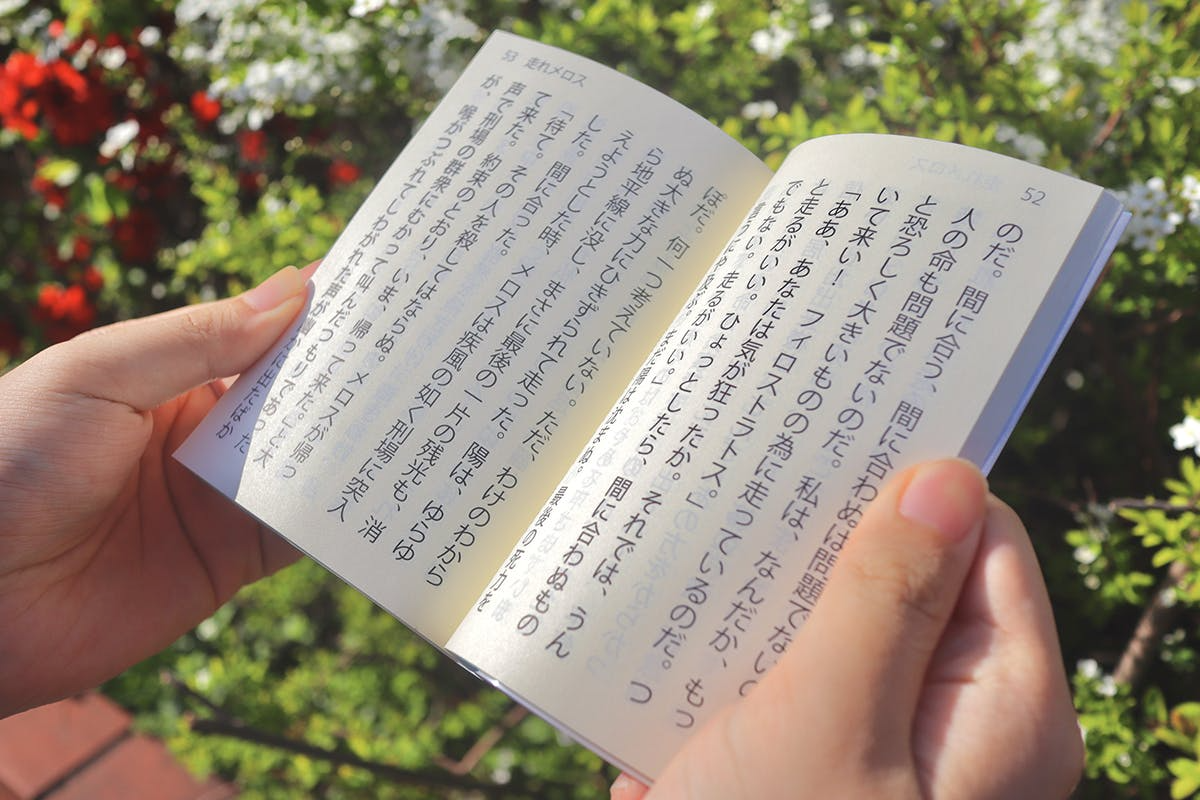 52
のだ。間に合う、間に合わぬは問題でない
人の命も問題でないのだ。私は、なんだか、もっ
と恐ろしく大きいものの為に走っているのだ。つ
いて来い！フィロストラトス。」
「ああ、あなたは気が狂ったか。それでは、うん
と走るがいい。ひょっとしたら、間に合わぬもの
でもない。走るがいい。」
言うにや及ぶ。まだ陽は沈まぬ。最後の死力を
53 走れメロス
ぽだ。何一つ考えていない。ただ、わけのわから
ぬ大きな力にひきずられて走った。陽は、ゆらゆ
ら地平線に没し、まさに最後の一片の残光も、消
えようとした時、メロスは疾風の如く刑場に突入
した。間に合った。
「待て。その人を殺してはならぬ。メロスが帰っ
て来た。約束のとおり、いま、帰って来た。」と大
声で刑場の群衆にむかって叫んだつもりであった
が、喉がつぶれてしわがれた声が幽かに出たばか